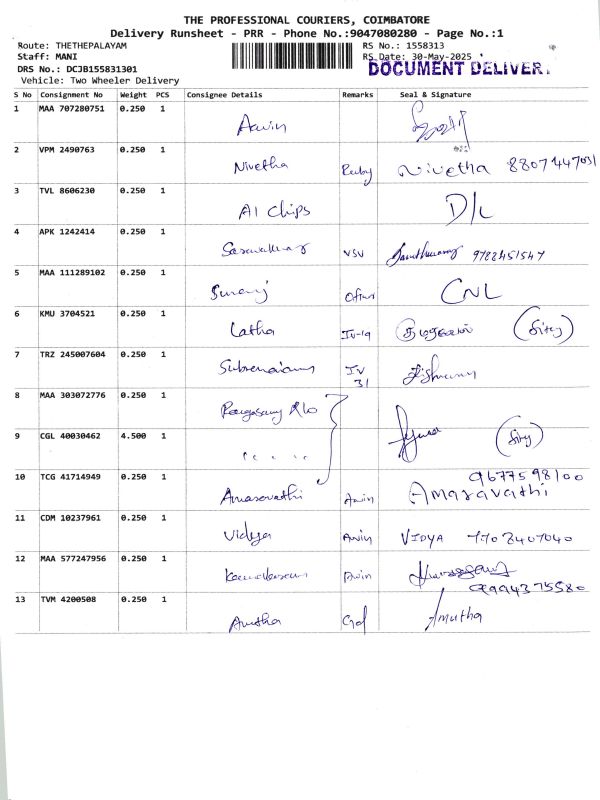 THE PROFESSIONAL COURIERS, COIMBATORE
Delivery Runsheet - PRR - Phone No.:9047080280 - Page No.:1
Route: THETHEPALAYAM RS No.: 1558313
Staff: MANI RS Date: 30-May-2025
DRS No.: DCJB155831301 DOCUMENT DELIVER
Vehicle: Two Wheeler Delivery
S No Consignment No Weight PCS Consignee Details Remarks Seal & Signature
1 MAA 707280751 0.250 1
2 VPM 2490763 0.250 1 Nivetha Ruby Nivetha
3 TVL 8606230 0.250 1 AI Chips D/L
4 APK 1242414 0.250 1 VSV
5 MAA 111289102 0.250 1 Suraj CNL
6 KMU 3704521 0.250 1 Latha IV-19
7 TRZ 245007604 0.250 1 IV 31
8 MAA 303072776 0.250 1
9 CGL 40030462 4.500 1
10 TCG 41714949 0.250 1 Amaravathi Awin 9677598100 Amaravathi
11 CDM 10237961 0.250 1 Vidya Awin VIDYA 7702407040
12 MAA 577247956 0.250 1 Awin 9994375580
13 TVM 4200508 0.250 1 Amutha God Amutha